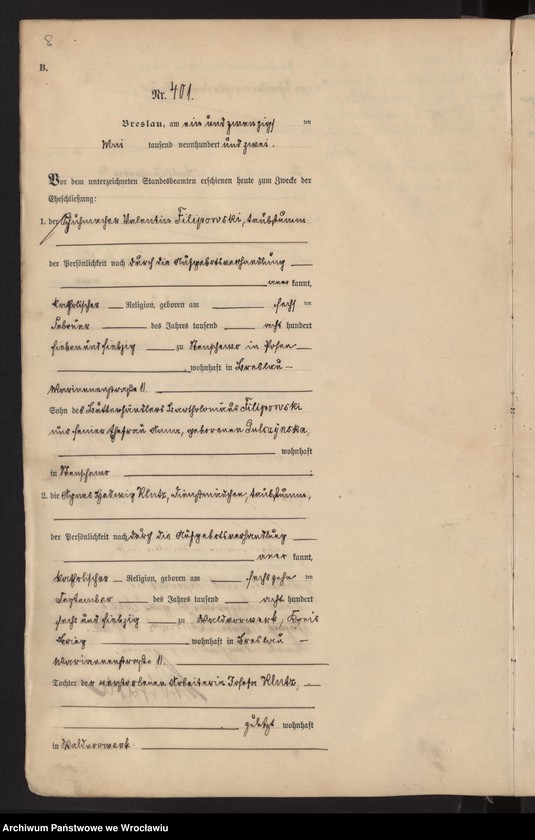 8
B.
Nr. 401.
Breslau, am ein und zwanzigs ten
Mai tausend neunhundert und zwei.
Vor dem unterzeichneten Standesbeamten erschienen heute zum Zwecke der
Eheschließung:
1. der Schuhmacher Valentin Filipowski, taubstumm
der Persönlichkeit nach durch die Aufgebotsverhandlung
aner kannt,
katholischer Religion, geboren am sechs ten
Februar des Jahres tausend acht hundert
sieben und siebzig zu Stenschewo in Posen
, wohnhaft in Breslau
Mariannenstraße 11.
Sohn des Butterhändlers Bartholomäus Filipowski
und seiner Ehefrau Anna, geborenen
wohnhaft
in Stenschewo .
2. die Agnes Hedwig Klutz, Dienstmädchen, taubstumm,
der Persönlichkeit nach durch die Aufgebotsverhandlung
aner kannt,
katholischer Religion, geboren am sechszehn ten
September des Jahres tausend acht hundert
sechs und siebzig zu Waldvorwerk, Kreis
Brieg , wohnhaft in Breslau
Mariannenstraße 11.
Tochter der verstorbenen Arbeiterin Josefa Klutz,
zuletzt wohnhaft
in Waldvorwerk
Archiwum Państwowe we Wrocławiu